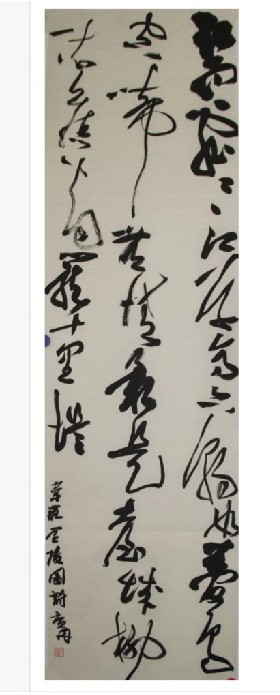 江雨霏霏江草齐六朝如梦鸟
空啼无情最是台城柳
依旧烟笼十里堤
韦庄金陵图诗